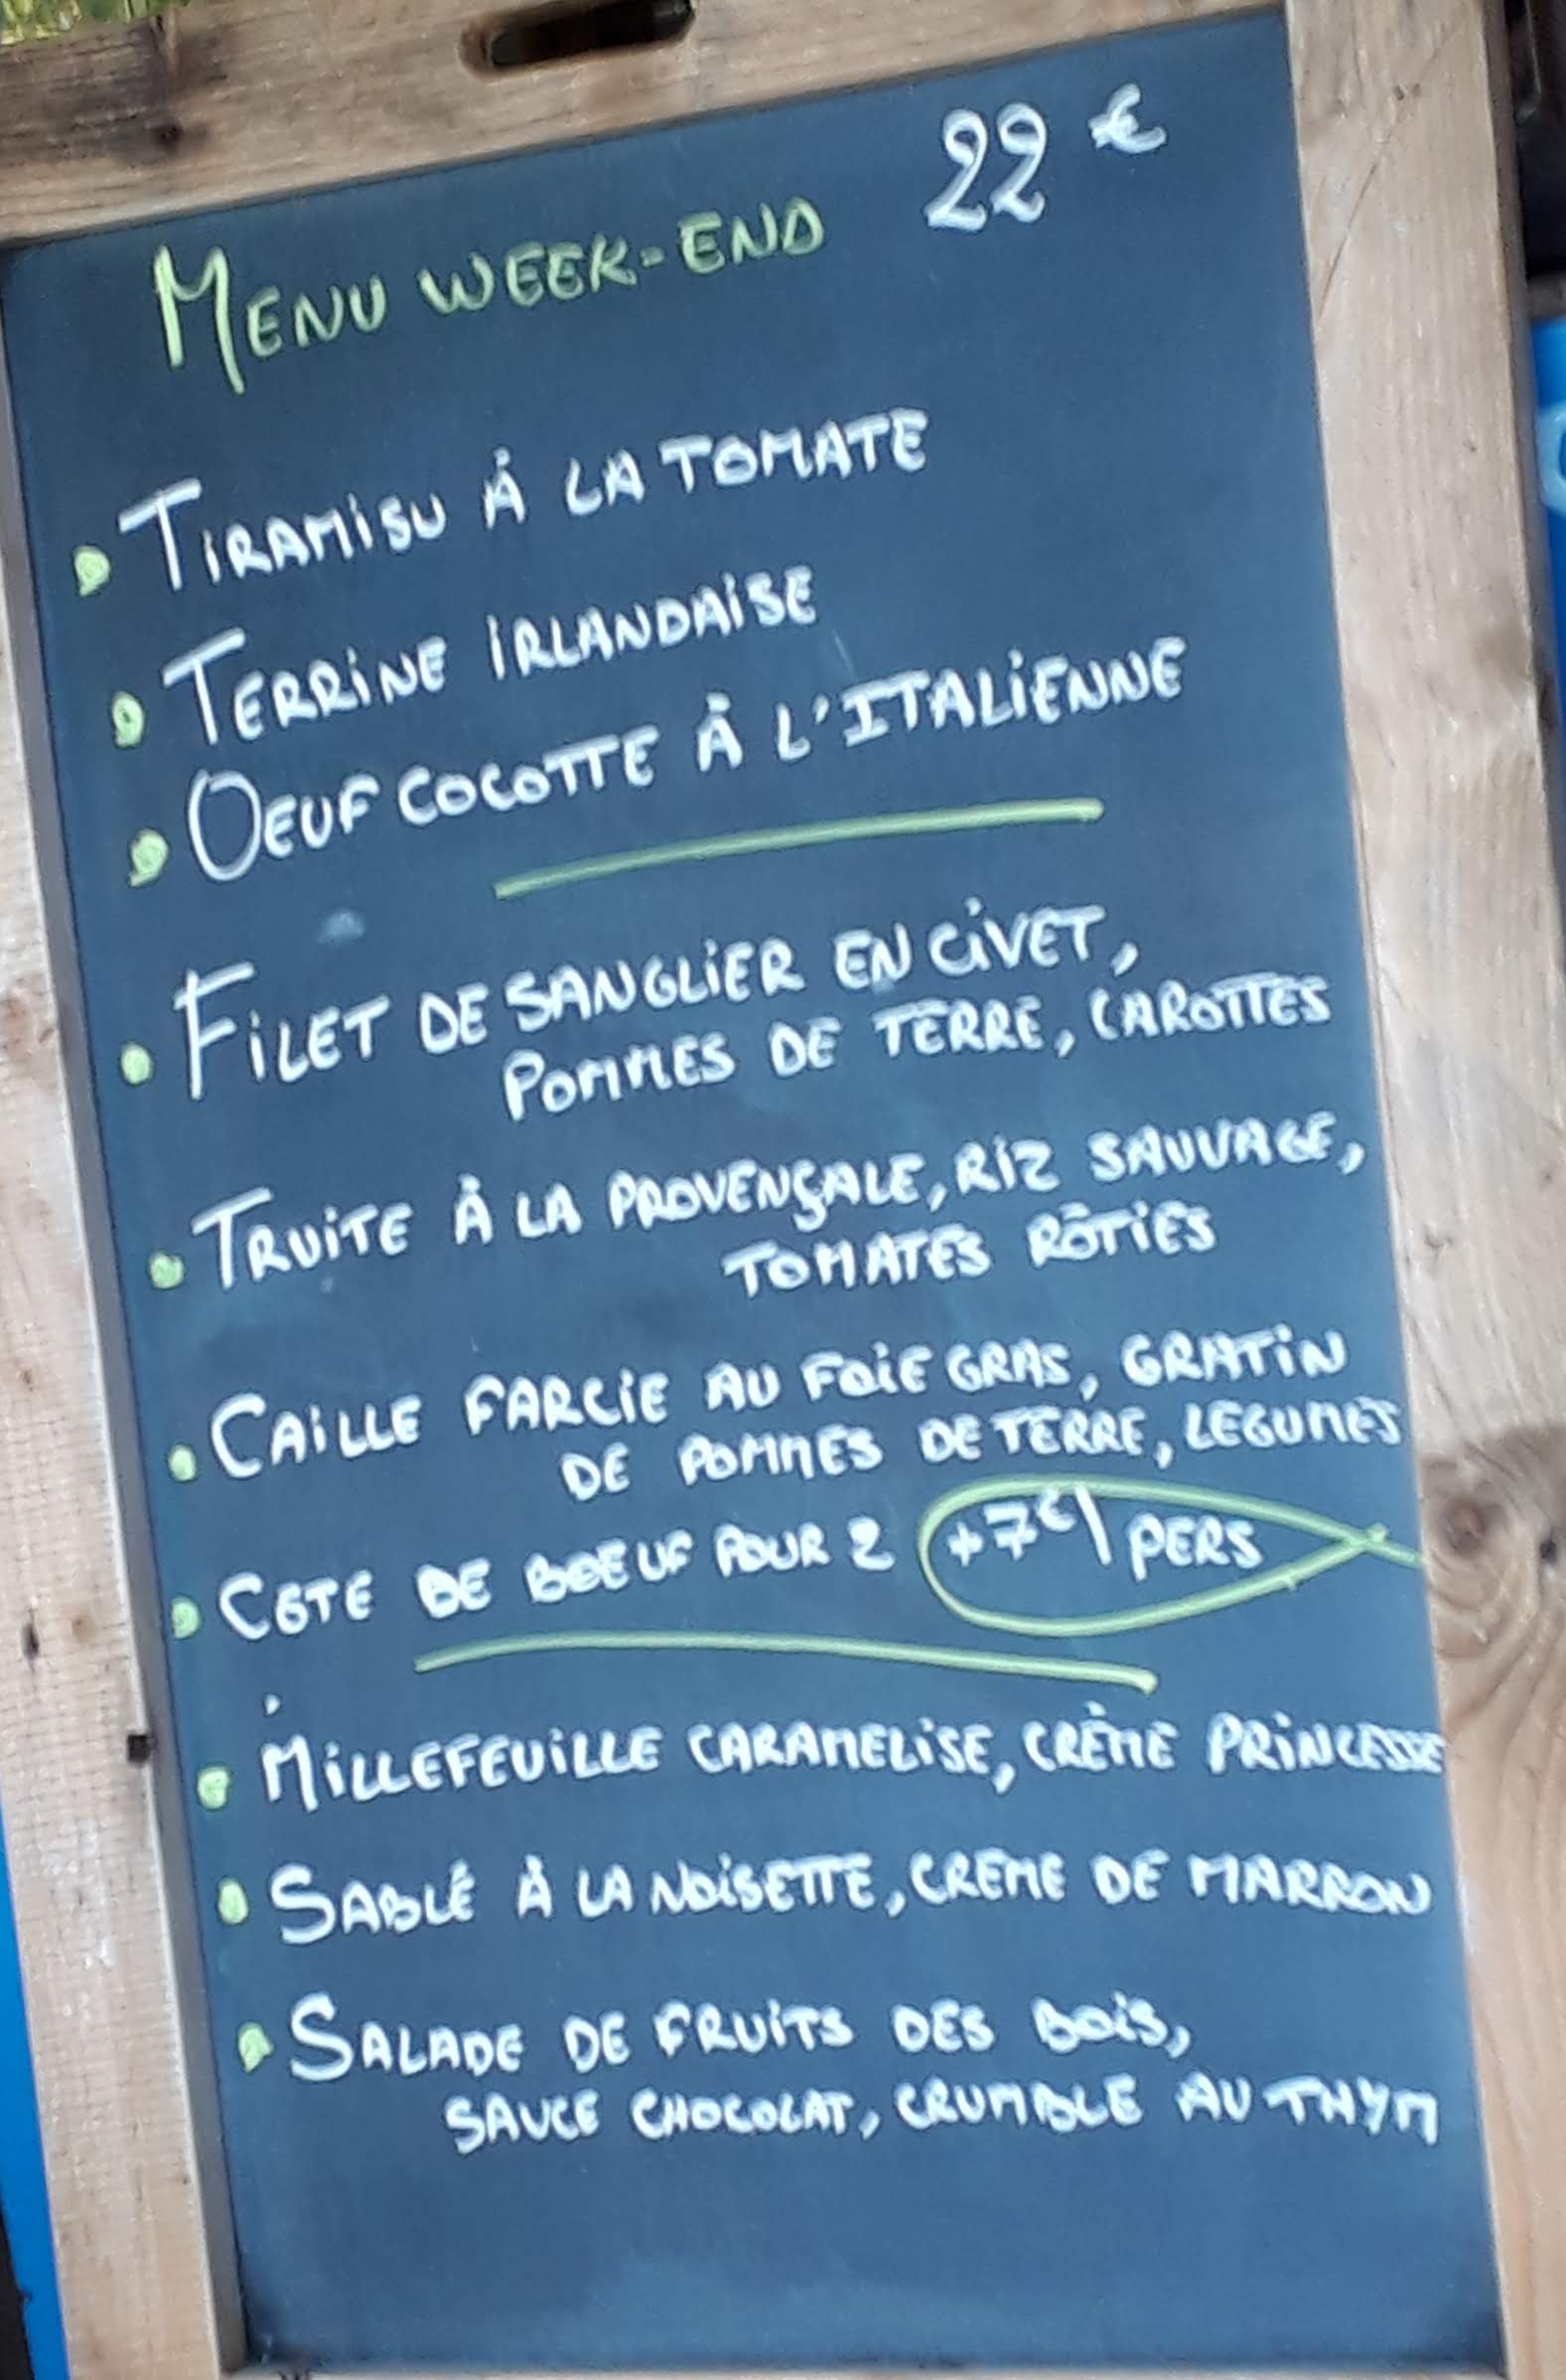 22 €
MENU WEEK-END
TIRAMISU À LA TOMATE
TERRINE IRLANDAISE
OEUF COCOTTE À L'ITALIENNE
FILET DE SANGLIER EN CIVET,
POMMES DE TERRE, CAROTTES
TRUITE À LA PROVENÇALE, RIZ SAUVAGE,
TOMATES RÔTIES
CAILLE FARCIE AU FOIE GRAS, GRATIN
DE POMMES DE TERRE, LEGUMES
COTE DE BOEUF POUR 2 +7€/PERS
MILLEFEUILLE CARAMELISE, CRÈME PRINCESSE
SABLÉ À LA NOISETTE, CREME DE MARRON
SALADE DE FRUITS DES BOIS,
SAUCE CHOCOLAT, CRUMBLE AU THYM